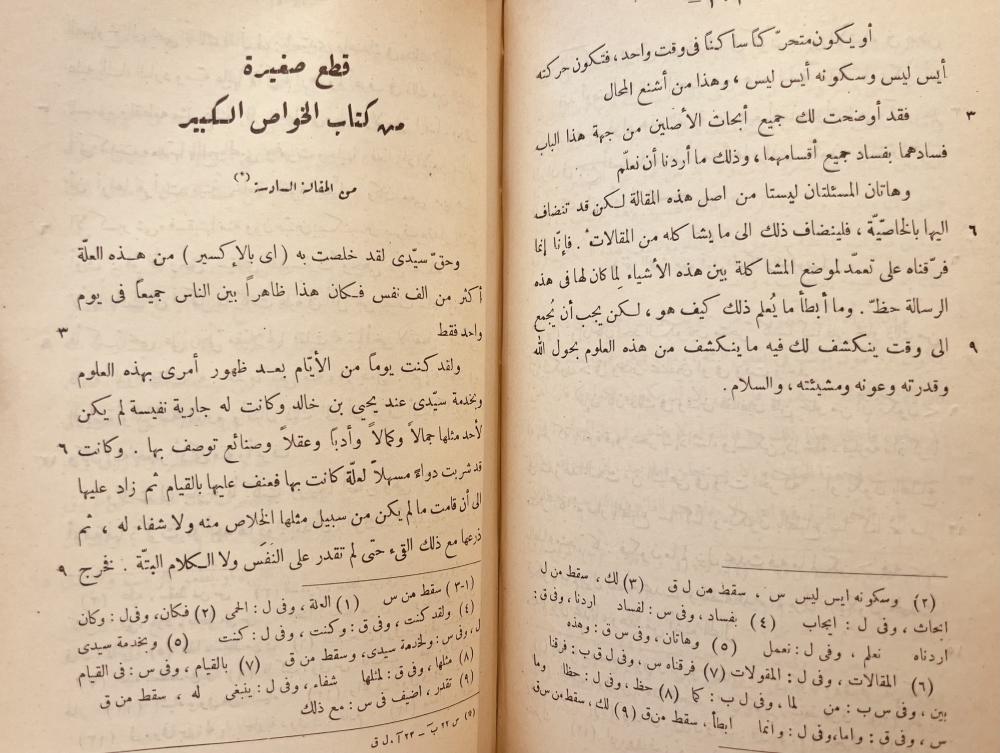 أو يكون متحرّكنًا ساكنًا فى وقت واحد ، فتكون حركته
أيس ليس وسكونه أيس ليس ، وهذا من أشنع المحال
فقد أوضحت لك جميع أبحاث الأصلين من جهة هذا الباب ٣
فسادهما بفساد جميع أقسامهما ، وذلك ما أردنا أن نعلّم
وهاتان المسئلتان ليستا من اصل هذه المقالة لكن قد تنضاف
اليها بالخاصّيّة ، فلينضاف ذلك الى ما يشاكله من المقالات . فإنّا إنما ٦
فرّقناه على تعمّد لموضع المشاكلة بين هذه الأشياء لِما كان لها فى هذه
الرسالة حظّ . وما أبطأ ما يُعلم ذلك كيف هو ، لكن يجب أن يُجمع
الى وقت ينكشف لك فيه ما ينكشف من هذه العلوم بحول الله ٩
وقدرته وعونه ومشيئته ، والسلام .
(٢) وسكونه ايس ليس س ، سقط من ل ق (٣) لك ، سقط من ل
ابحاث ، وفى ل : ايجاب (٤) بفساد ، وفى س : لفساد اردنا ، وفى ق :
اردناه نعلم ، وفى ل : نعمل (٥) وهاتان ، وفى س ق : وهذه
(٦) المقالات ، وفى ل : المقولات (٧) فرقناه س ، وفى ل ق ب : فرقنا
بين ، وفى س ب : من لما ، وفى ل ب : كما (٨) حظ ، وفى ل : حظا وما
س ، وفى ق : واما ، وفى ل : وانما ابطأ ، سقط من ق (٩) لك ، سقط من س ق
قطع صغيرة
من كتاب الخواص الكبير
من المقالة السادسة (*)
وحقّ سيّدى لقد خلصت به ( اى بالإكسير ) من هذه العلّة
أكثر من الف نفس فكان هذا ظاهراً بين الناس جميعاً فى يوم
واحد فقط ٣
ولقد كنت يوماً من الأيّام بعد ظهور أمرى بهذه العلوم
وبخدمة سيّدى عند يحيى بن خالد وكانت له جارية نفيسة لم يكن
لأحد مثلها جمالاً وكمالاً وأدباً وعقلاً وصنائع توصف بها . وكانت ٦
قد شربت دواءً مسهلاً لعلّة كانت بها فعنف عليها بالقيام ثم زاد عليها
الى أن قامت ما لم يكن من سبيل مثلها الخلاص منه ولا شفاء له ، ثم
ذرعها مع ذلك القىء حتى لم تقدر على النَفَس ولا الكلام البتّة . فخرج ٩
(١-٣) سقط من س (١) العلة ، وفى ل : الحمى (٢) فكان ، وفى ل : وكان
(٤) ولقد كنت ، وفى ق : وكنت ، وفى ل : كنت (٥) وبخدمة سيدى
ل ، وفى س : ولخدمة سيدى ، وسقط من ق (٧) بالقيام ، وفى س : فى القيام
(٨) مثلها ، وفى ق : لمثلها شفاء ، وفى ل : ينبغى له ، سقط من ق
(٩) تقدر ، اضيف فى س : مع ذلك
(*) س ٢٢ ب – ٢٣ آ ، ل ق